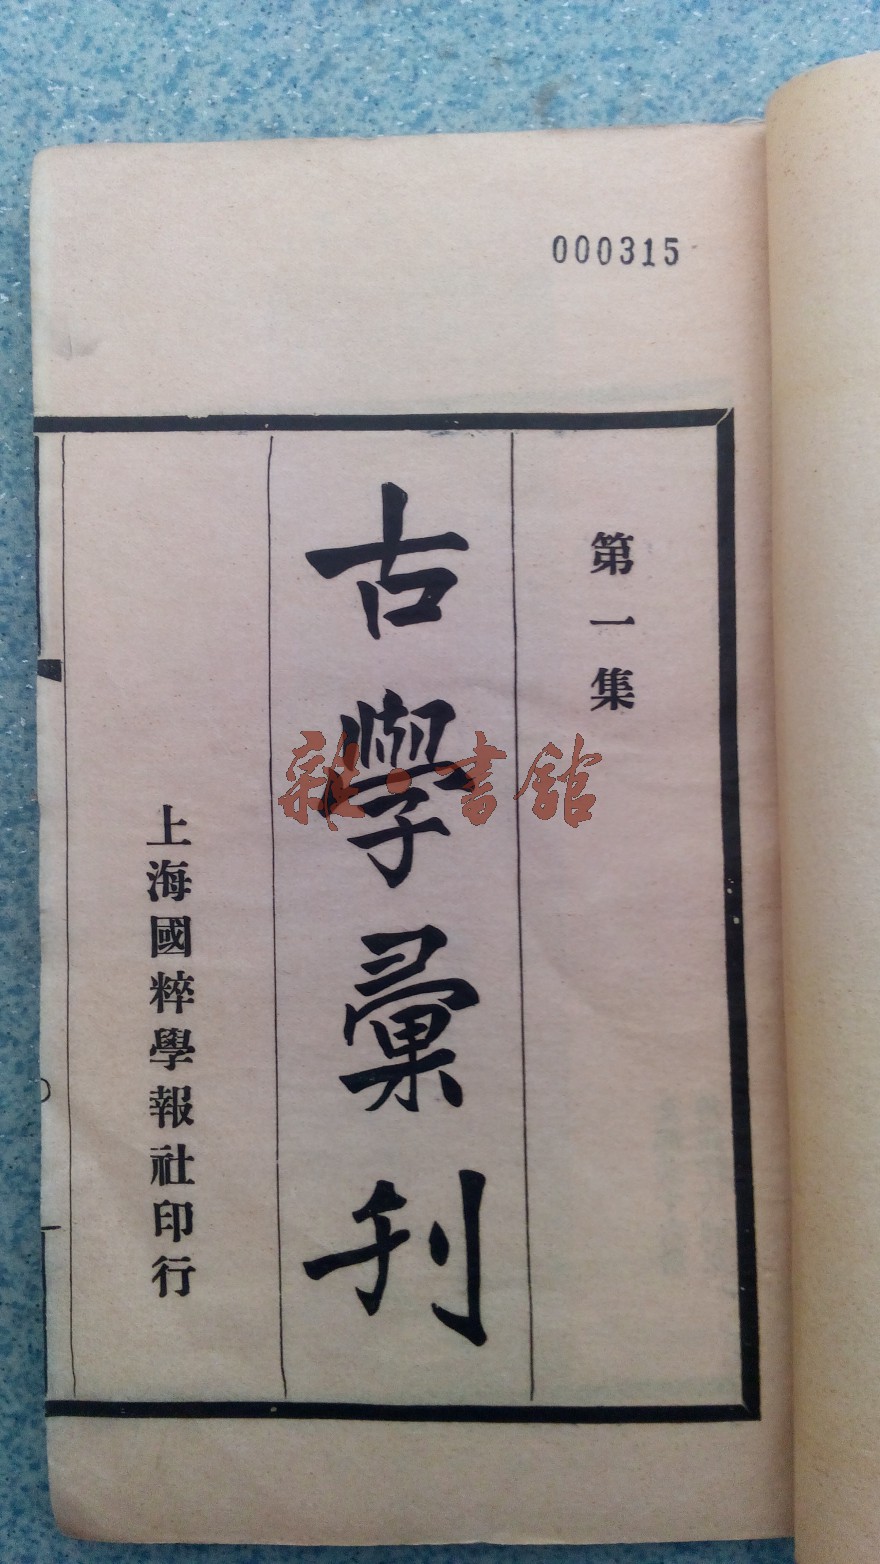 000315
第一集
古學彙刊
上海國粹學報社印行
雜·書館